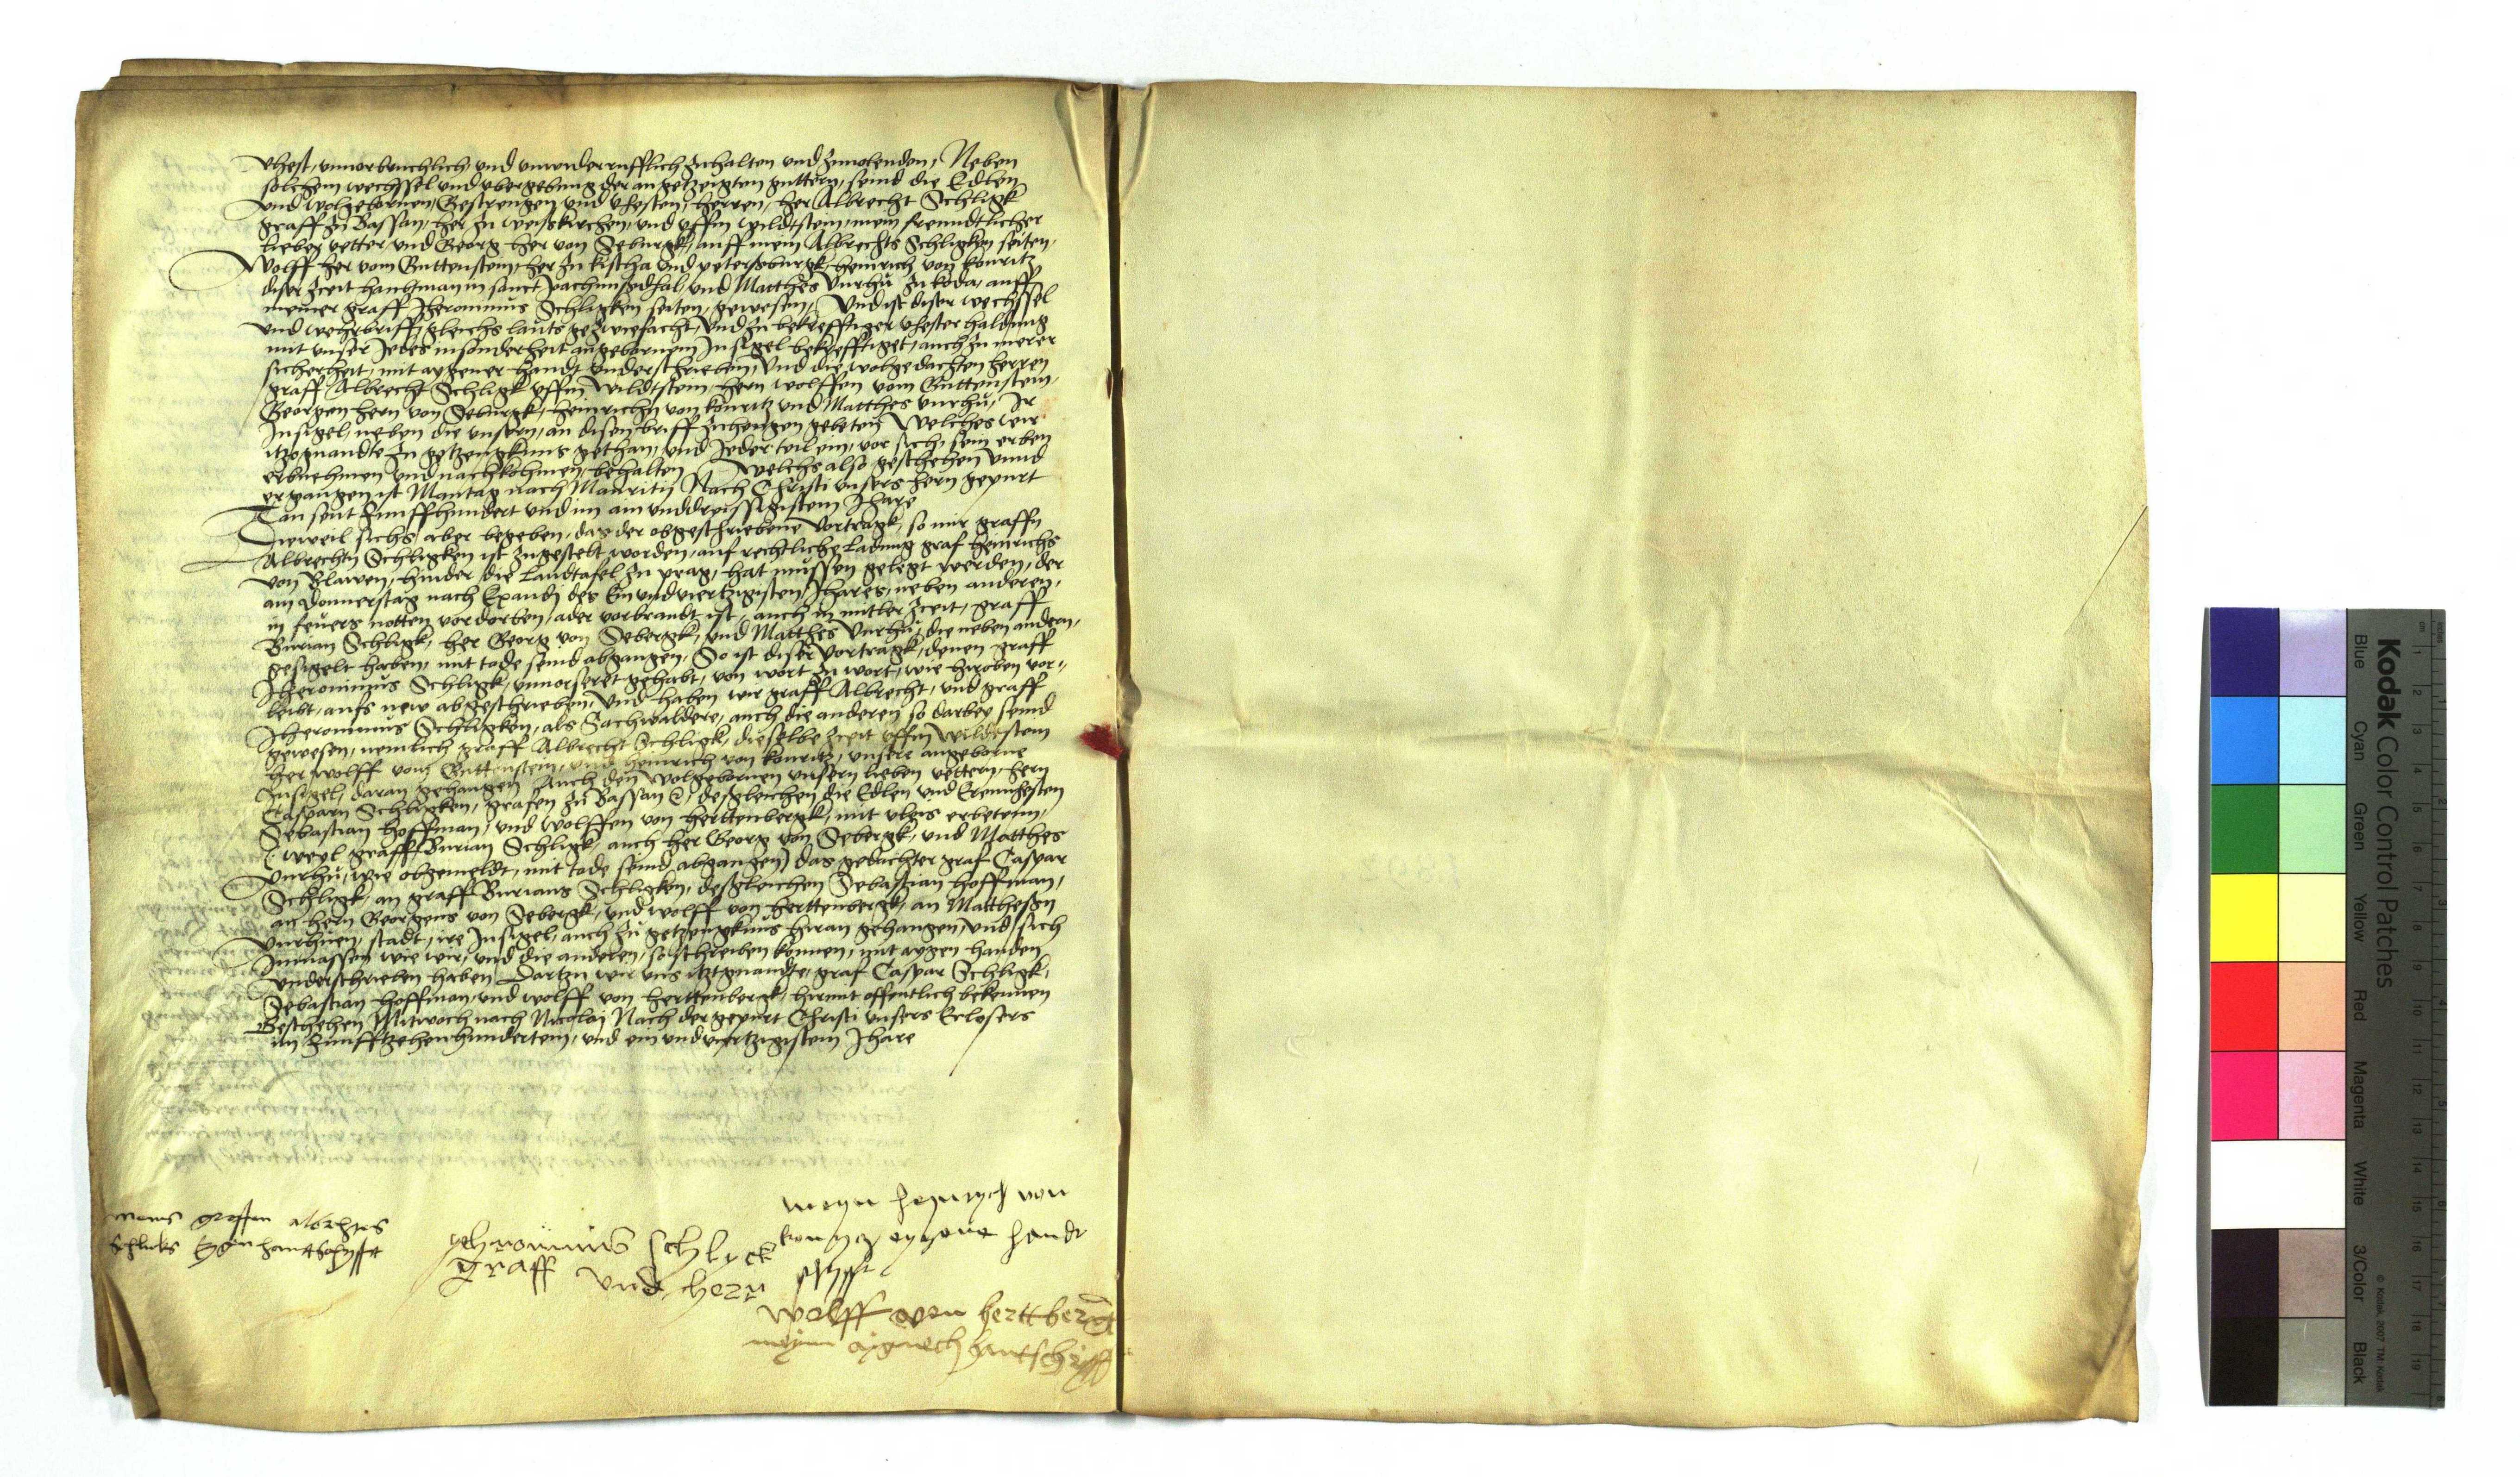 vhest, unvorbruchlich und unwiderrufflich zuhalten und zuvolenden, Neben
solchem wechssel und ubergebung der angetzeigten guttern, seind die Edlen
und wolgebornen, Gestrengen und vhesten, herren, her Albrecht Schligk
graff zu Bassan, her zu weisskirchen, und uffm wildstein, mein freundtlicher
lieber vetter und Georg her von Seburgk, auff mein Albrechts Schligken seiten,
Wolff her vom Guttenstein, her zu kischa und petersburgk, heinrich von konritz
diser zceit haubtman in sanct Jochimsthal, und Matthes Vnrhu zu koda, auff
meiner graff Jheronimus Schligken seiten, gewesen, Und ist diser wechssel
und wehrbriff, gleichs lauts gezwiefacht, Und zu bekrefftiger vhester haldung
mit unser Jedes in sonderheit angebornem Insigel bekrefftiget, auch zu merer
sicherheit, mit aygener handt underschrieben, Und die wolgedachten herren
graff Albrecht Schligk uffm Wildtstein, hern wolffen vom Guttenstein,
Georgen hern von Seburgk, heinrichen von konritz und Matthes vnrhu, Ir
Insigel, neben die unsern, an disen briff zuhengen gebeten, Welches wir
itzgnandte zu getzeugknus gethan, und Jeder teil ein, vor sich, sein erben
erbnehmen und nachkohmen, behalten, Welchs also geschehen unnd
ergangen ist Mantag nach Mauritij Nach Christi unsers hern gepurt
Tausent Funffhundert und im ain unddreissigistem Jhare
Dieweil sichs aber begeben, das der obgeschriebene Vortragk, so mir graffn
Albrechtn Schligken ist zugestelt worden, auf rechtliche Ladung graf Heinrichs
von Blawen, hinder die Landtafel zu prag, hat mussen gelegt werden, der
am Donnerstag nach Exaudi des Ein und viertzigisten Jhares, neben anderen,
in feuers notten vordorben, ader vorbrandt ist, auch in mitler zceit, graff
Burian Schligk, her Georg von Sebergk, und Matthes Vnrhu, die neben andern,
gesigelt haben, mit tode seind abgangen, So ist diser Vortragk, denen graff
Jheronimus Schligk, unvorseret gehabt, von wort zu wort, wie hiroben vor-
leibt, aufs new abgeschrieben, Und haben wir graff Albrecht, und graff
Jheronimus Schligken, als Sachwaldere, auch die anderen so darbey seind
gewesen, nemlich graff Albrecht Schligk, dieselbe zceit uffm Wildtstein
her wolff vom Guttenstein, und heinrich von konritz, unsere angeborne
Insigel, daran gehangen, Auch den Wolgebornen unsern lieben vettern, hern
Casparn Schligken, grafen zu Bassan &, desgleichen die Edlen und Erenvhesten
Sebastian Hoffman, und Wolffen von herttenbergk, mit vleis erbetenn,
(weyl graff Burian Schligk, auch her Georg von Sebergk, und Matthes
Vnrhu, wie obgemeldt, mit tode seind abgangen) das gedachter graf Caspar
Schligk, an graff Burians Schligken, desgleichen Sebastian hoffman,
an hern Georgens von Sebergk, und wolff von herttenbergk, an Matthesen
Vnrhuen, stadt, ire Insigel, auch zu getzeugknus hiran gehangen, und sich
Inmassen wie wir, und die anderen, so schreiben konnen, mit aygen handen
underschrieben haben, Dartzu wir uns itztgnandte, graf Caspar Schligk,
Sebastian hoffman, und wolff von herttenbergk, hirmit offentlich bekennen
Geschehen Mitwoch nach Nicolaj Nach der gepurt Christi unsers Erlosers
im Funfftzehenhundertem, und ein und viertzigistem Jhare
meins graffen albrehts
schlicks Egen hanttschryfft
Jehronimus schlyck
graff und herr
meyn heinrych von
konrytz eygene handt
schryfft
wolff von herttberg
meynn aignech hantschrifft
Kodak Color Control Patches
Blue Cyan Green Yellow Red Magenta White 3/Color Black
© Kodak, 2007 TM: Kodak